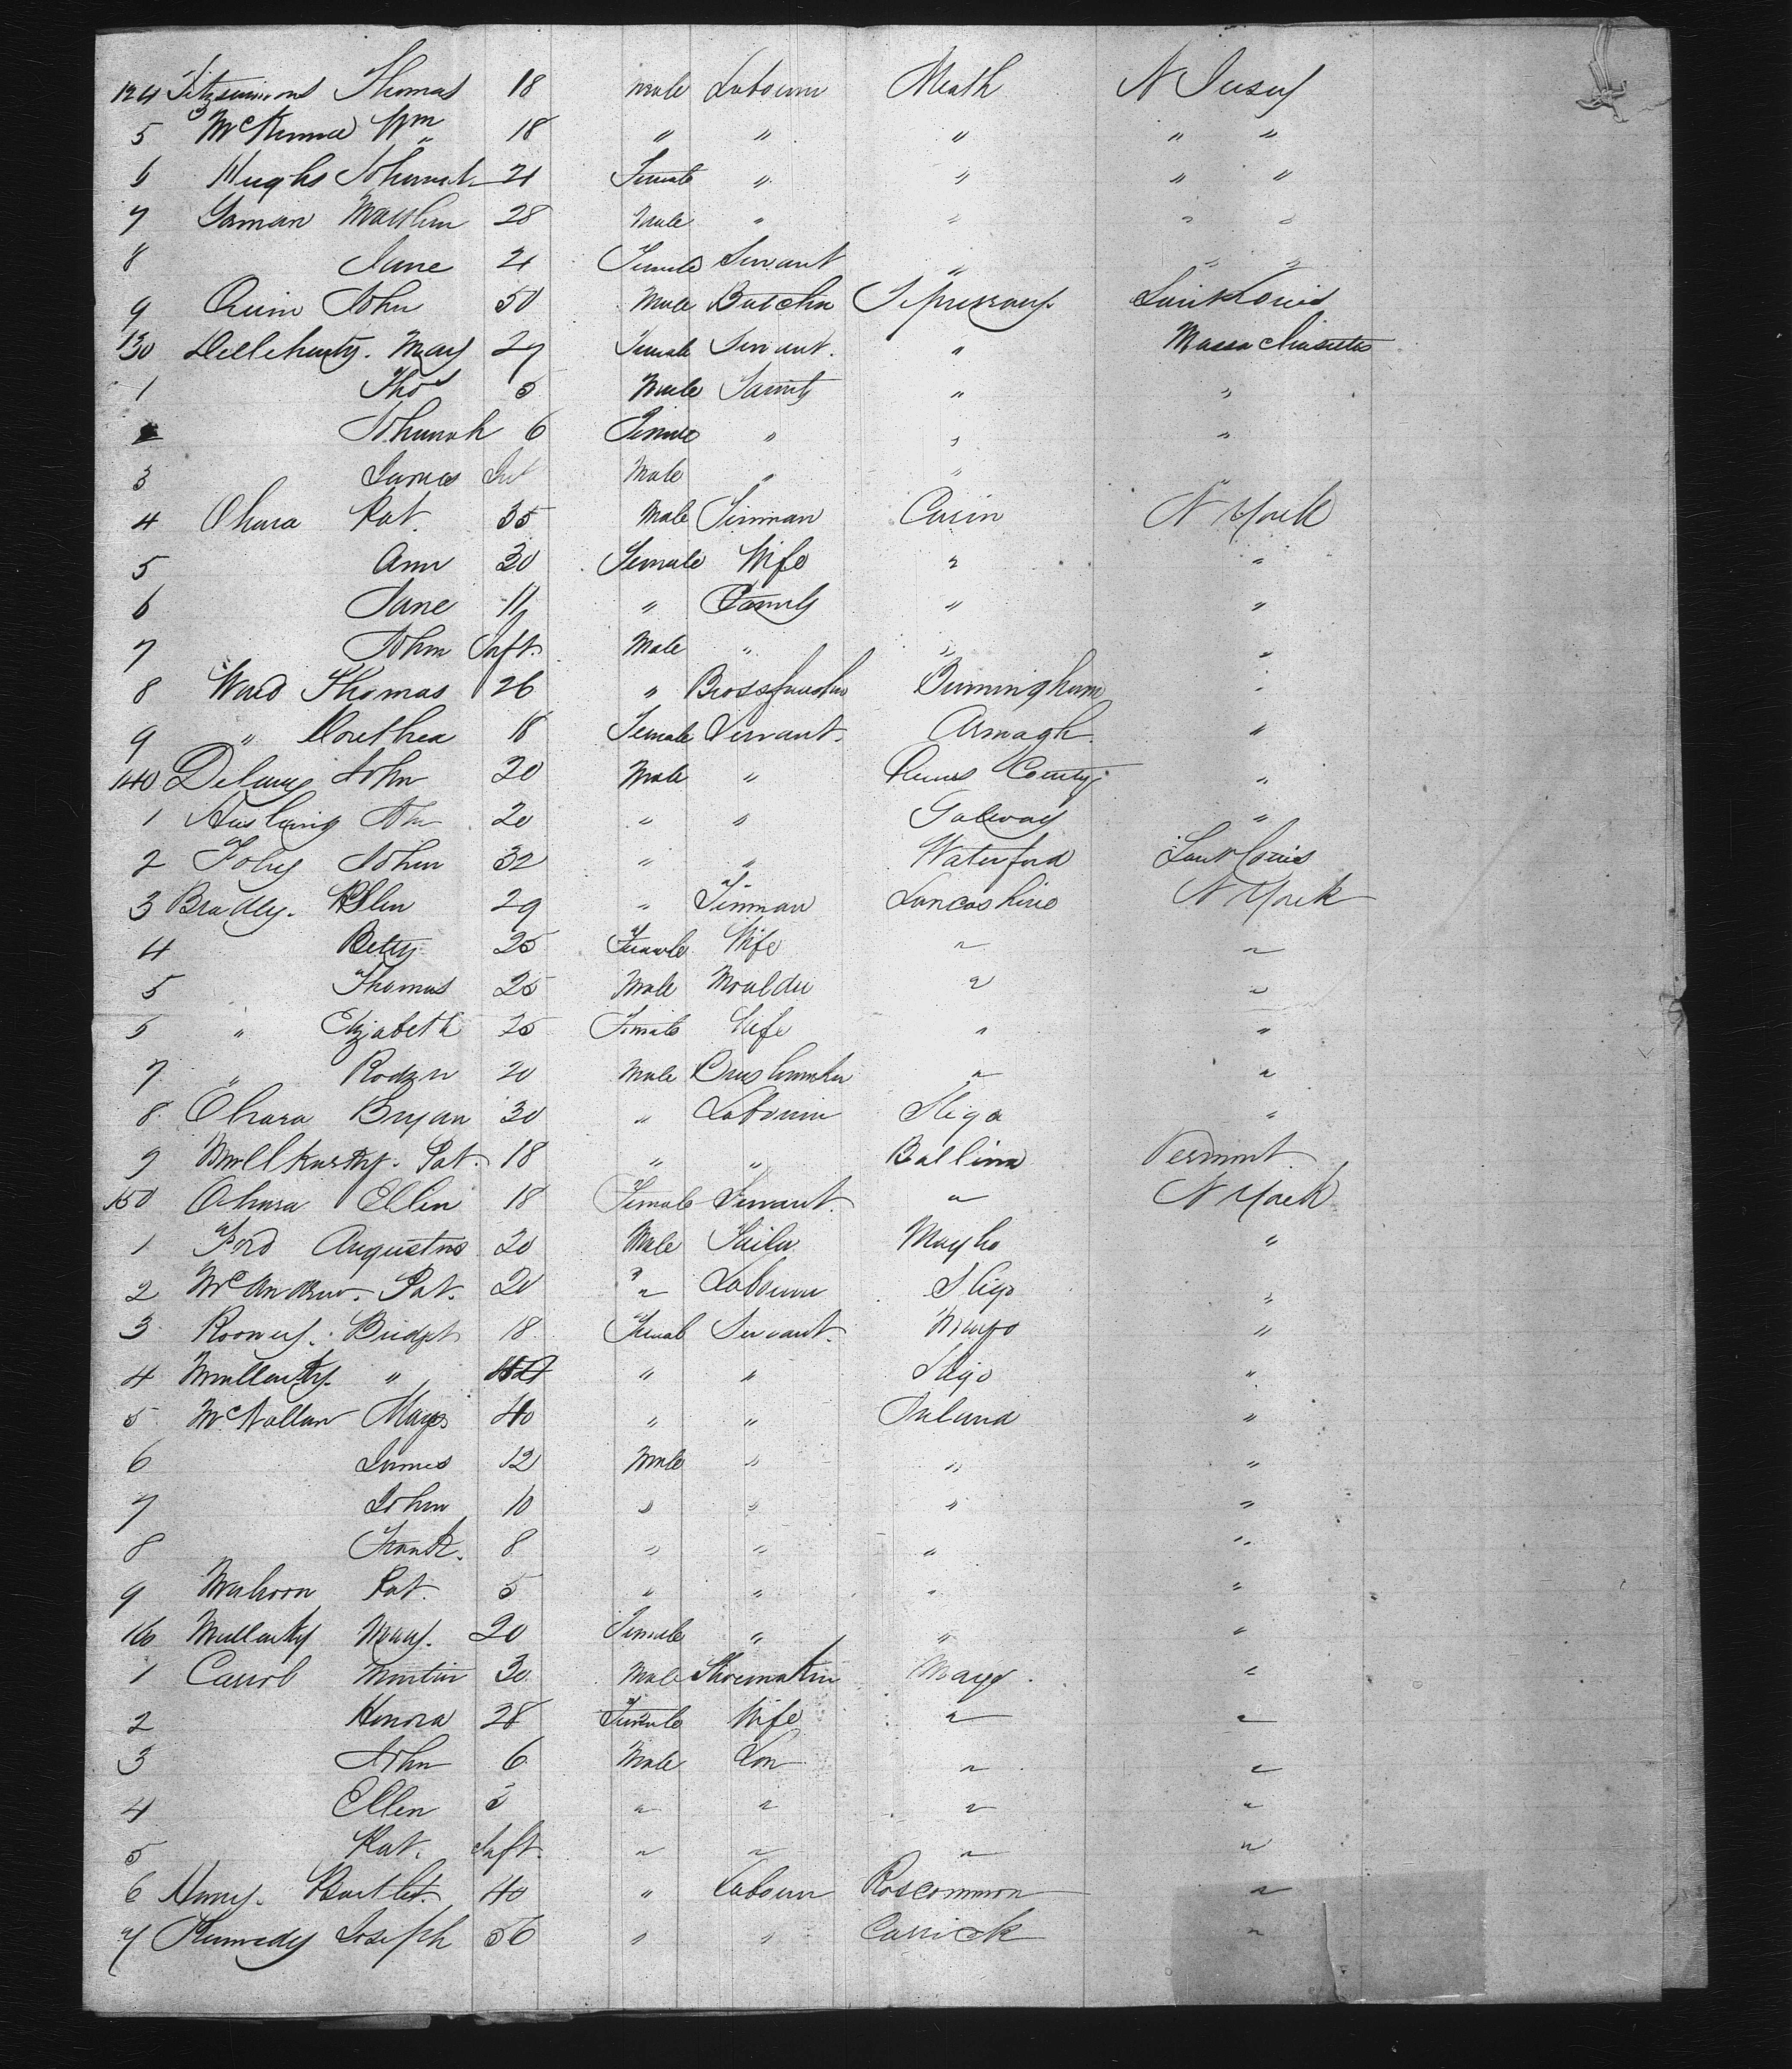 124 Fitzsimons Thomas 18 Male Labourer Meath N Jersey
5 McKenna Wm 18 " " " " "
6 Hughs Johannah 21 Female " " " "
7 28 Male " " " "
8 Jane 21 Female Servant " " "
9 Quinn John 50 Male Butcher Tipperary Saint Louis
130 Mary 27 Female Servant. " Massachusetts
1 Thos 5 Male Family " "
2 Johanah 6 Female " " "
3 James Inf Male " " "
4 Ohara Pat. 35 Male Tinman Cavin N York
5 Ann 30 Female Wife " "
6 Jane 11 " Family " "
7 John Inft. Male " " "
8 Ward Thomas 26 " Birmingham "
9 " Dorethea 18 Female Servant. Armagh "
140 Delany John 20 Male " Queens County "
1 20 " " Galway "
2 Foley John 32 " " Waterford Saint Louis
3 Bradley. Allen 29 " Tinman Lancashire N York
4 Betty 25 Female Wife " "
5 Thomas 25 Male Moulder " "
5 " Elizabeth 25 Female Wife " "
7 " 20 Male " "
8 Ohara Bryan 30 " Labourer Sligo "
9 Pat. 18 " " Ballina Vermont
150 Ohara Ellen 18 Female Servant. " N York
1 Ford Augustus 20 Male Mayho "
2 McAndrew. Pat. 20 " Labourer Sligo "
3 Rooney. Bridget 18 Femal Servant. Mayo "
4 Mullarky. " " " Sligo "
5 40 " " Ireland "
6 James 12 Male " " "
7 John 10 " " " "
8 Frank. 8 " " " "
9 Pat. 5 " " " "
160 Mullarky Mary. 20 Female " " "
1 Carrol Martin 30 Male Shoemaker Mayo "
2 Honora 28 Female Wife " "
3 John 6 Male Son " "
4 Ellen 3 " " " "
5 Pat. Inft. " " " "
6 Bartlet. 40 " Labourer Roscommon "
7 Kennedy Joseph 56 " " Carrick "